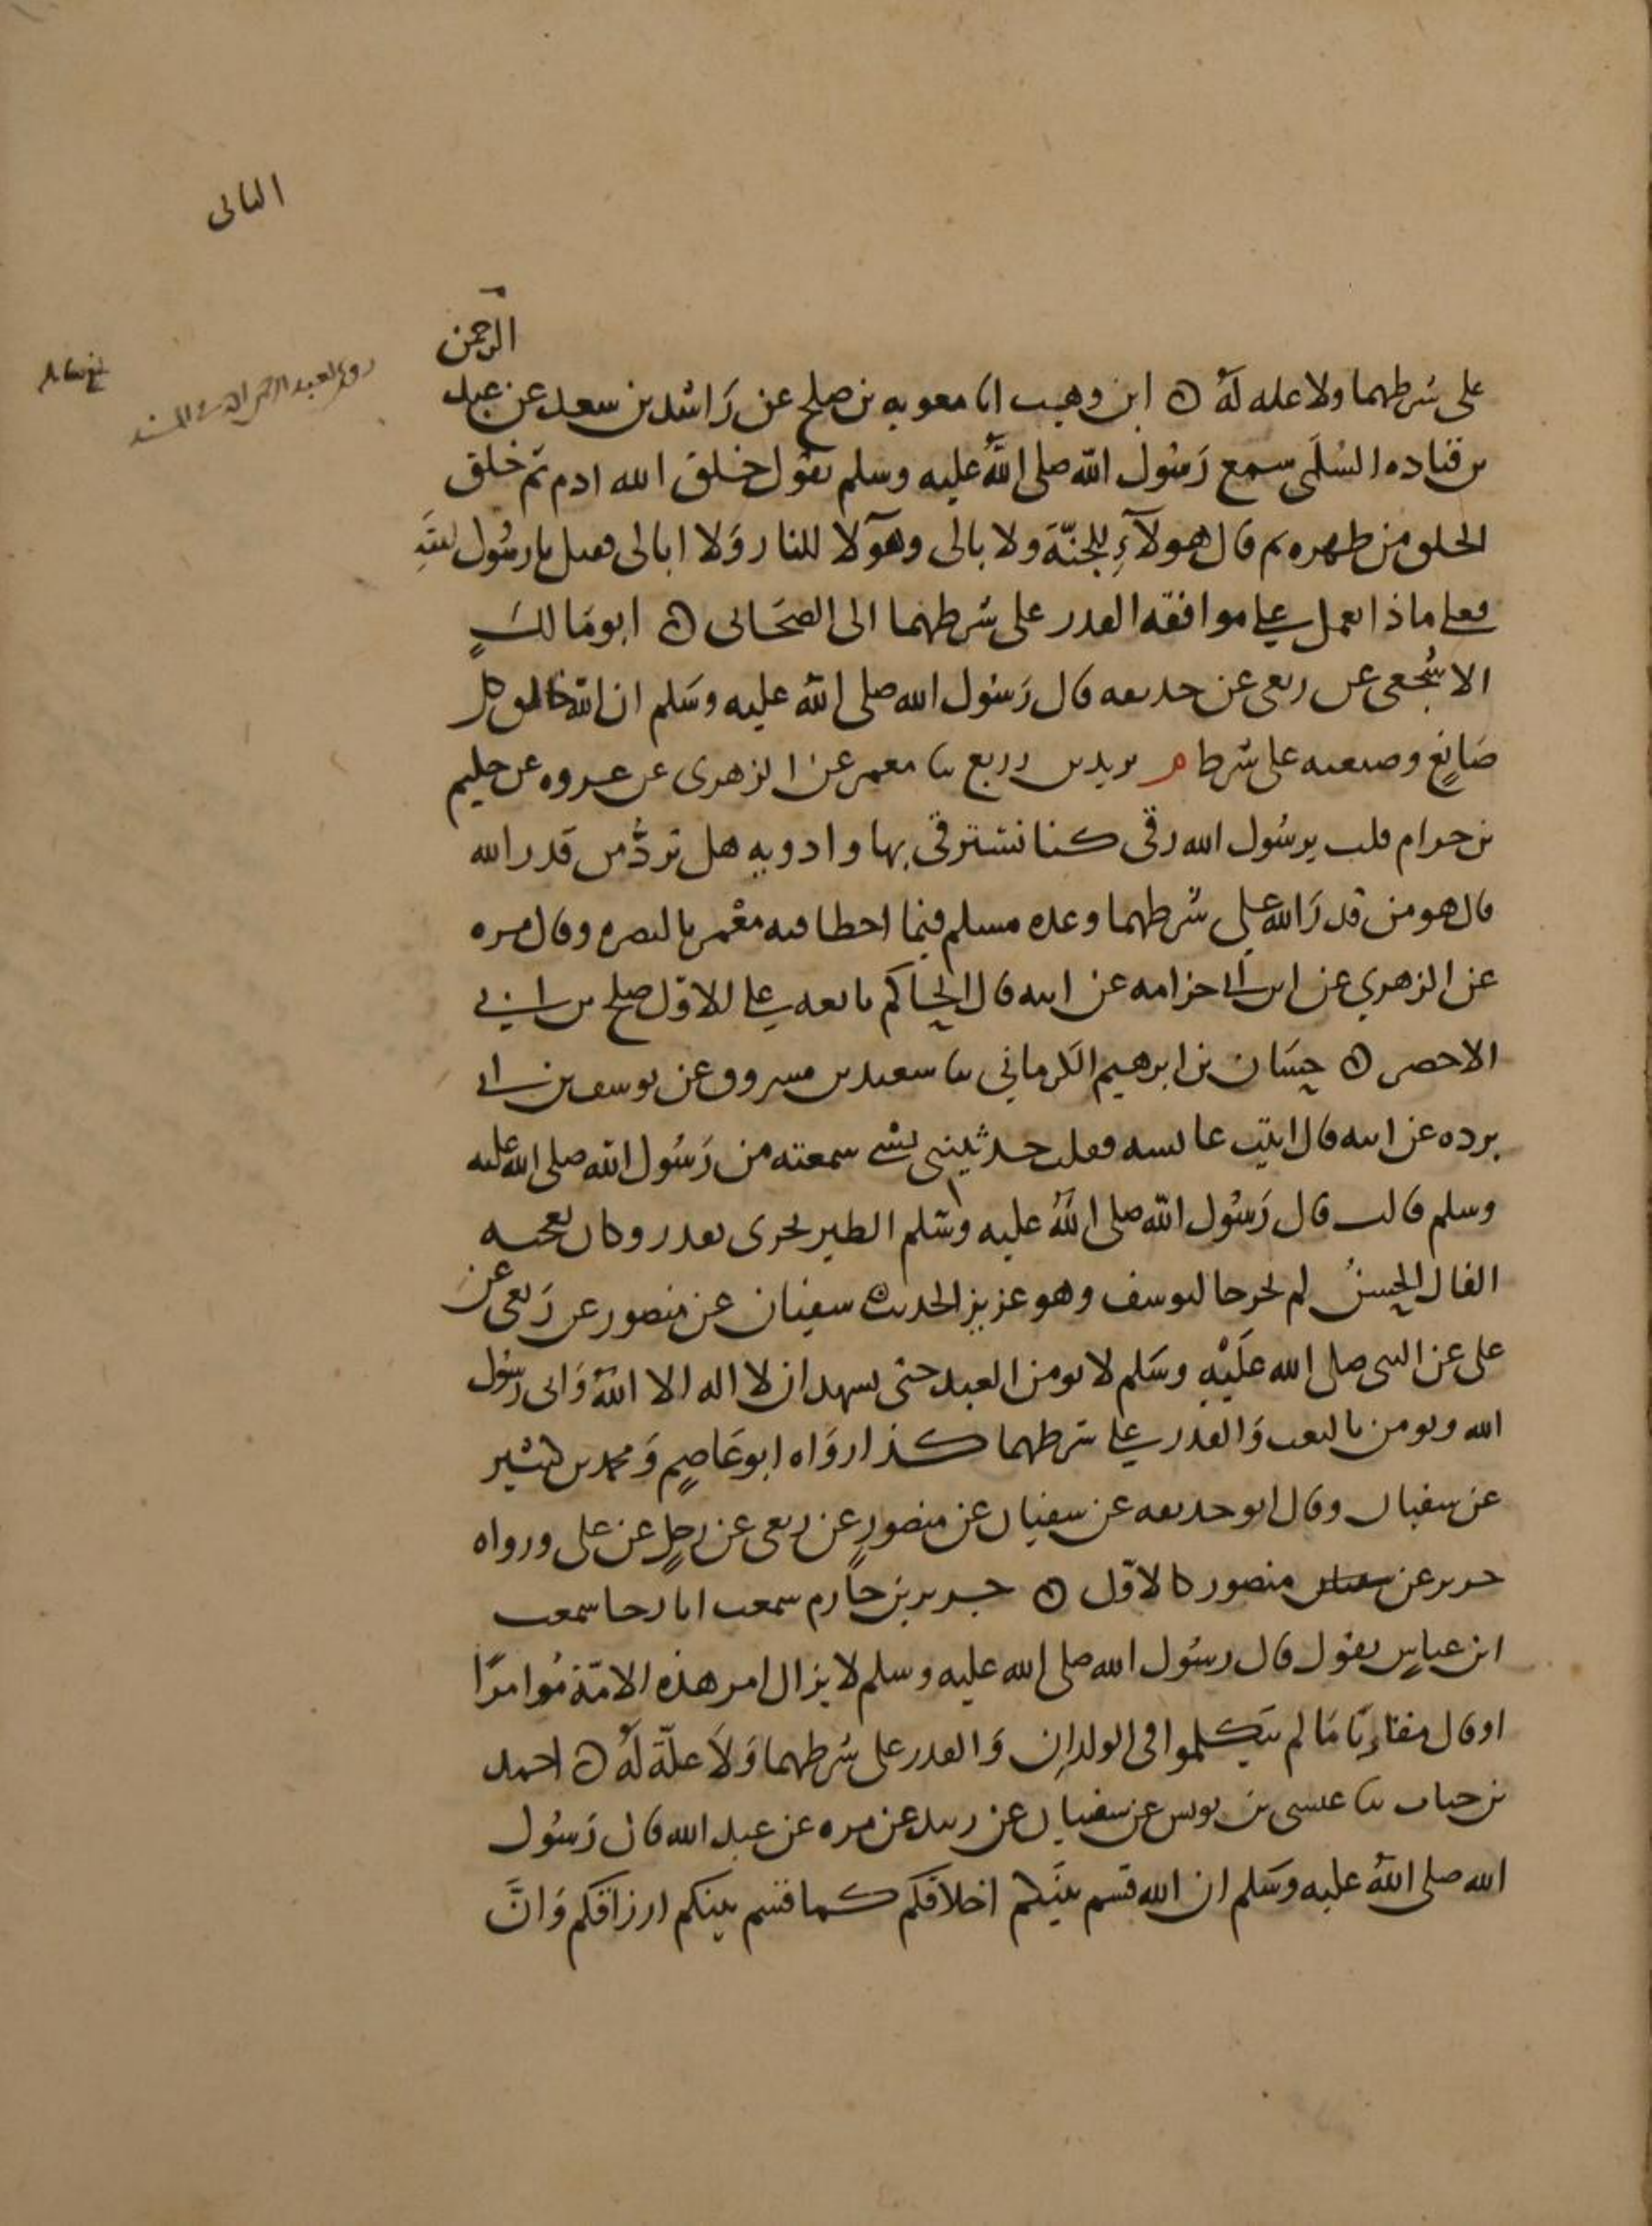 الثاني
الرحمن
على شرطهما ولا عله له ه ابن وهب انا معويه بن صلح عن راشد بن سعد عن عبد
بن قتاده السلمي سمع رَسُول الله صلى الله عليه وسلم يقول خلق الله ادم ثم خلق
الخلق من ظهره ثم قال هولآءِ للجنّة ولا بالى وهوَلا للنار وَلا ابالى فقيل يا رسُول الله
فعلى ماذا نعمل على موافقه القدر على شرطهما الى الصحَابى ه ابو مَالكٍ
الاشجعى عن ربعى عن حذيفه قال رَسُول الله صلى الله عليه وسَلم ان الله خالق كل
صَانعٍ وصنعته على شرط م يزيد بن زريع ثنا معمر عن الزهرى عن عروه عن حكيم
بن حزام قلت يرسُول الله رقى كنا نسترقى بها وادويه هل تردُّ من قَدر الله
قال هو من قدرَ الله على شرطهما وعده مسلم فيما اخطا فيه معْمر بالبصره وقال مره
عن الزهري عن ابن ابى خزامه عن ابيه قال الحاكم تابعه على الاوّل صلح بن ابى
الاخضر ه حسَان بن ابرهيم الكرماني ثنا سعيد بن مسروق عن يوسف بن ابى
برده عن ابيه قال اتيت عائسه فقلت حدثيننى بشى سمعته من رَسُول الله صلى الله عليه
وسلم قالت قال رَسُول الله صلى الله عليه وسَلم الطير تجرى بقدر وكان يعجبه
الفال الحسنُ لم يخرجا ليوسف وهو عزيز الحديث ه سفيان عن منصور عن رَبعى عن
على عن النبى صلى الله علَيْهِ وسَلم لا يومن العبد حتى يسهد ان لا اله الا الله وَانى رسُول
الله ويومن بالبعث وَالقدر على شرطهما كذا روَاه ابو عَاصمٍ وَمحمد بن كثير
عن سفيان وقال ابو حذيفه عن سفيان عن منصورٍ عن ربعى عن رجلٍ عن على ورواه
جرير عن منصور كالاوّل ه جرير بن حازم سمعت ابا رجا سمعت
ابن عباسٍ يقول قال رسُول الله صلى الله عليه وسلم لا يزال امر هذه الامّة مُوامرًا
او قال مقاربًا مَا لم يتكلموا فى الولدان وَالقدر على شرطهما وَلاَ علّة لهُ ه احمد
بن جناب ثنا عيسى بن يونس عن سفيان عن زبيد عن مره عن عبد الله قال رَسُول
الله صلى اللهُ عليه وسَلم ان الله قسم بينَكم اخلاقكم كما قسم بينكم ارزاقكم وَانَّ